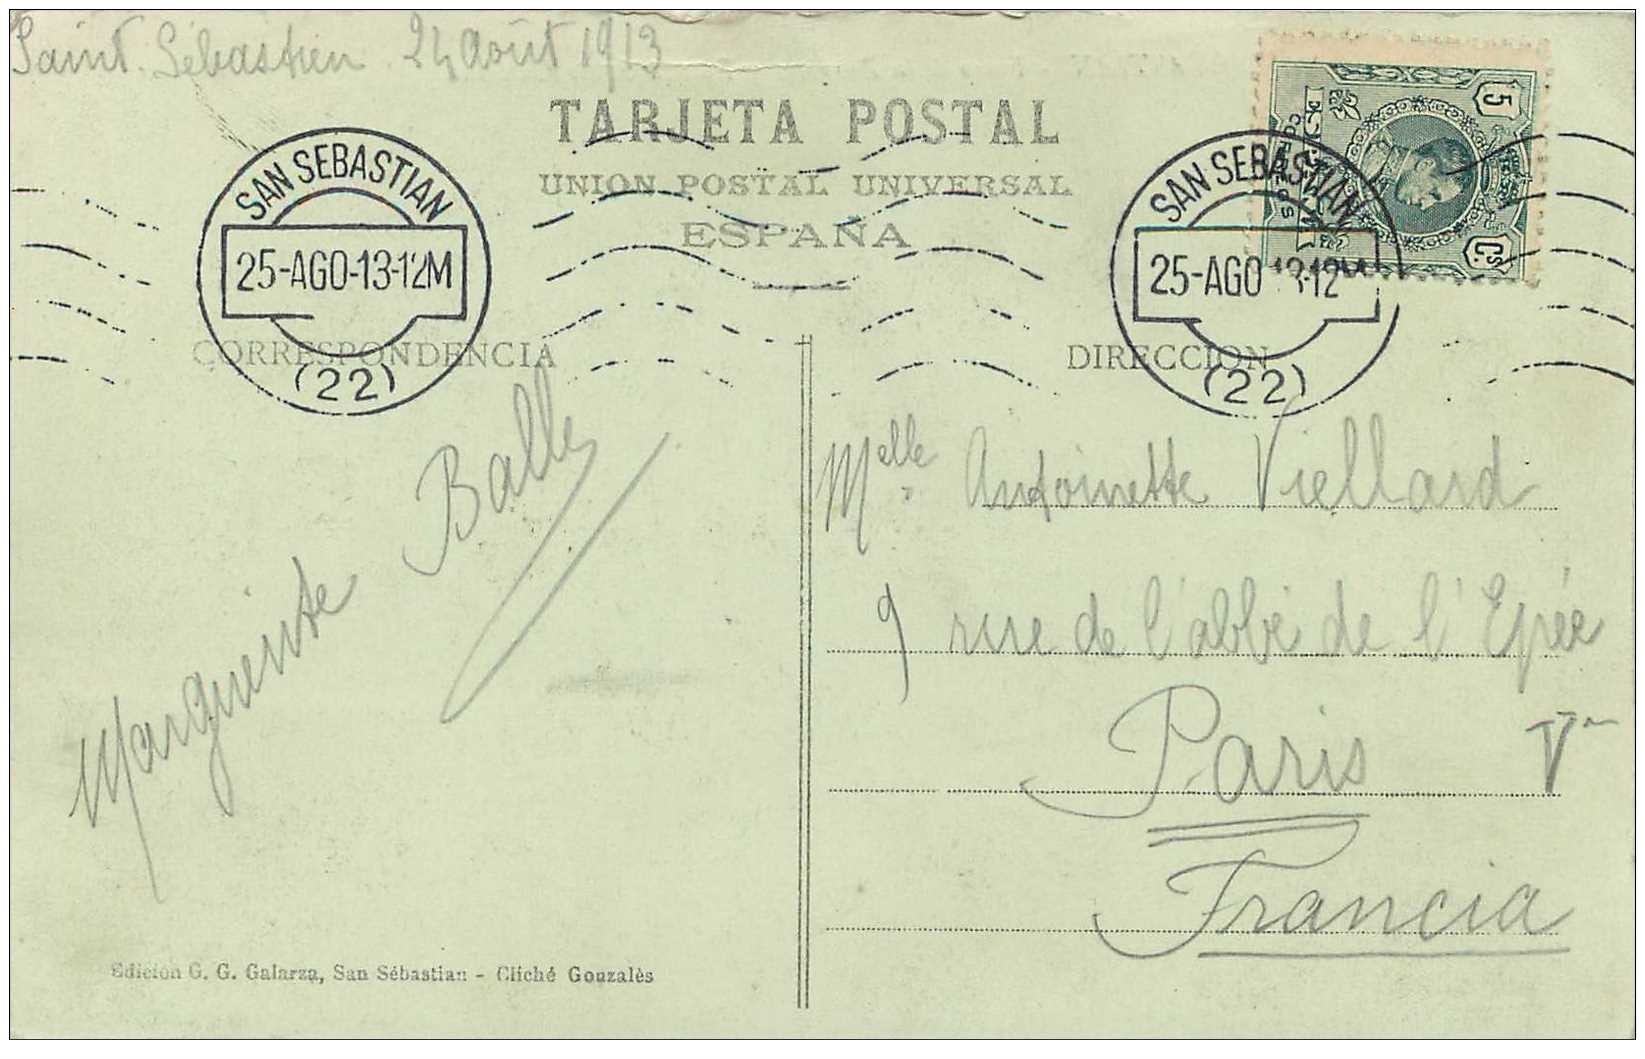 Saint. Sébastien 24 Août 1913
TARJETA POSTAL
UNION POSTAL UNIVERSAL
ESPAÑA
SAN SEBASTIAN
25-AGO-13-12M
(22)
SAN SEBASTIAN
25-AGO 13-12M
(22)
5
Cs
CORRESPONDENCIA
DIRECCION
Marguerite
Melle Antoinette Viellard
9 rue de l'abbé de l'Epée
Paris V
Francia
Edición G. G. Galarza, San Sébastian - Cliché Gonzalès